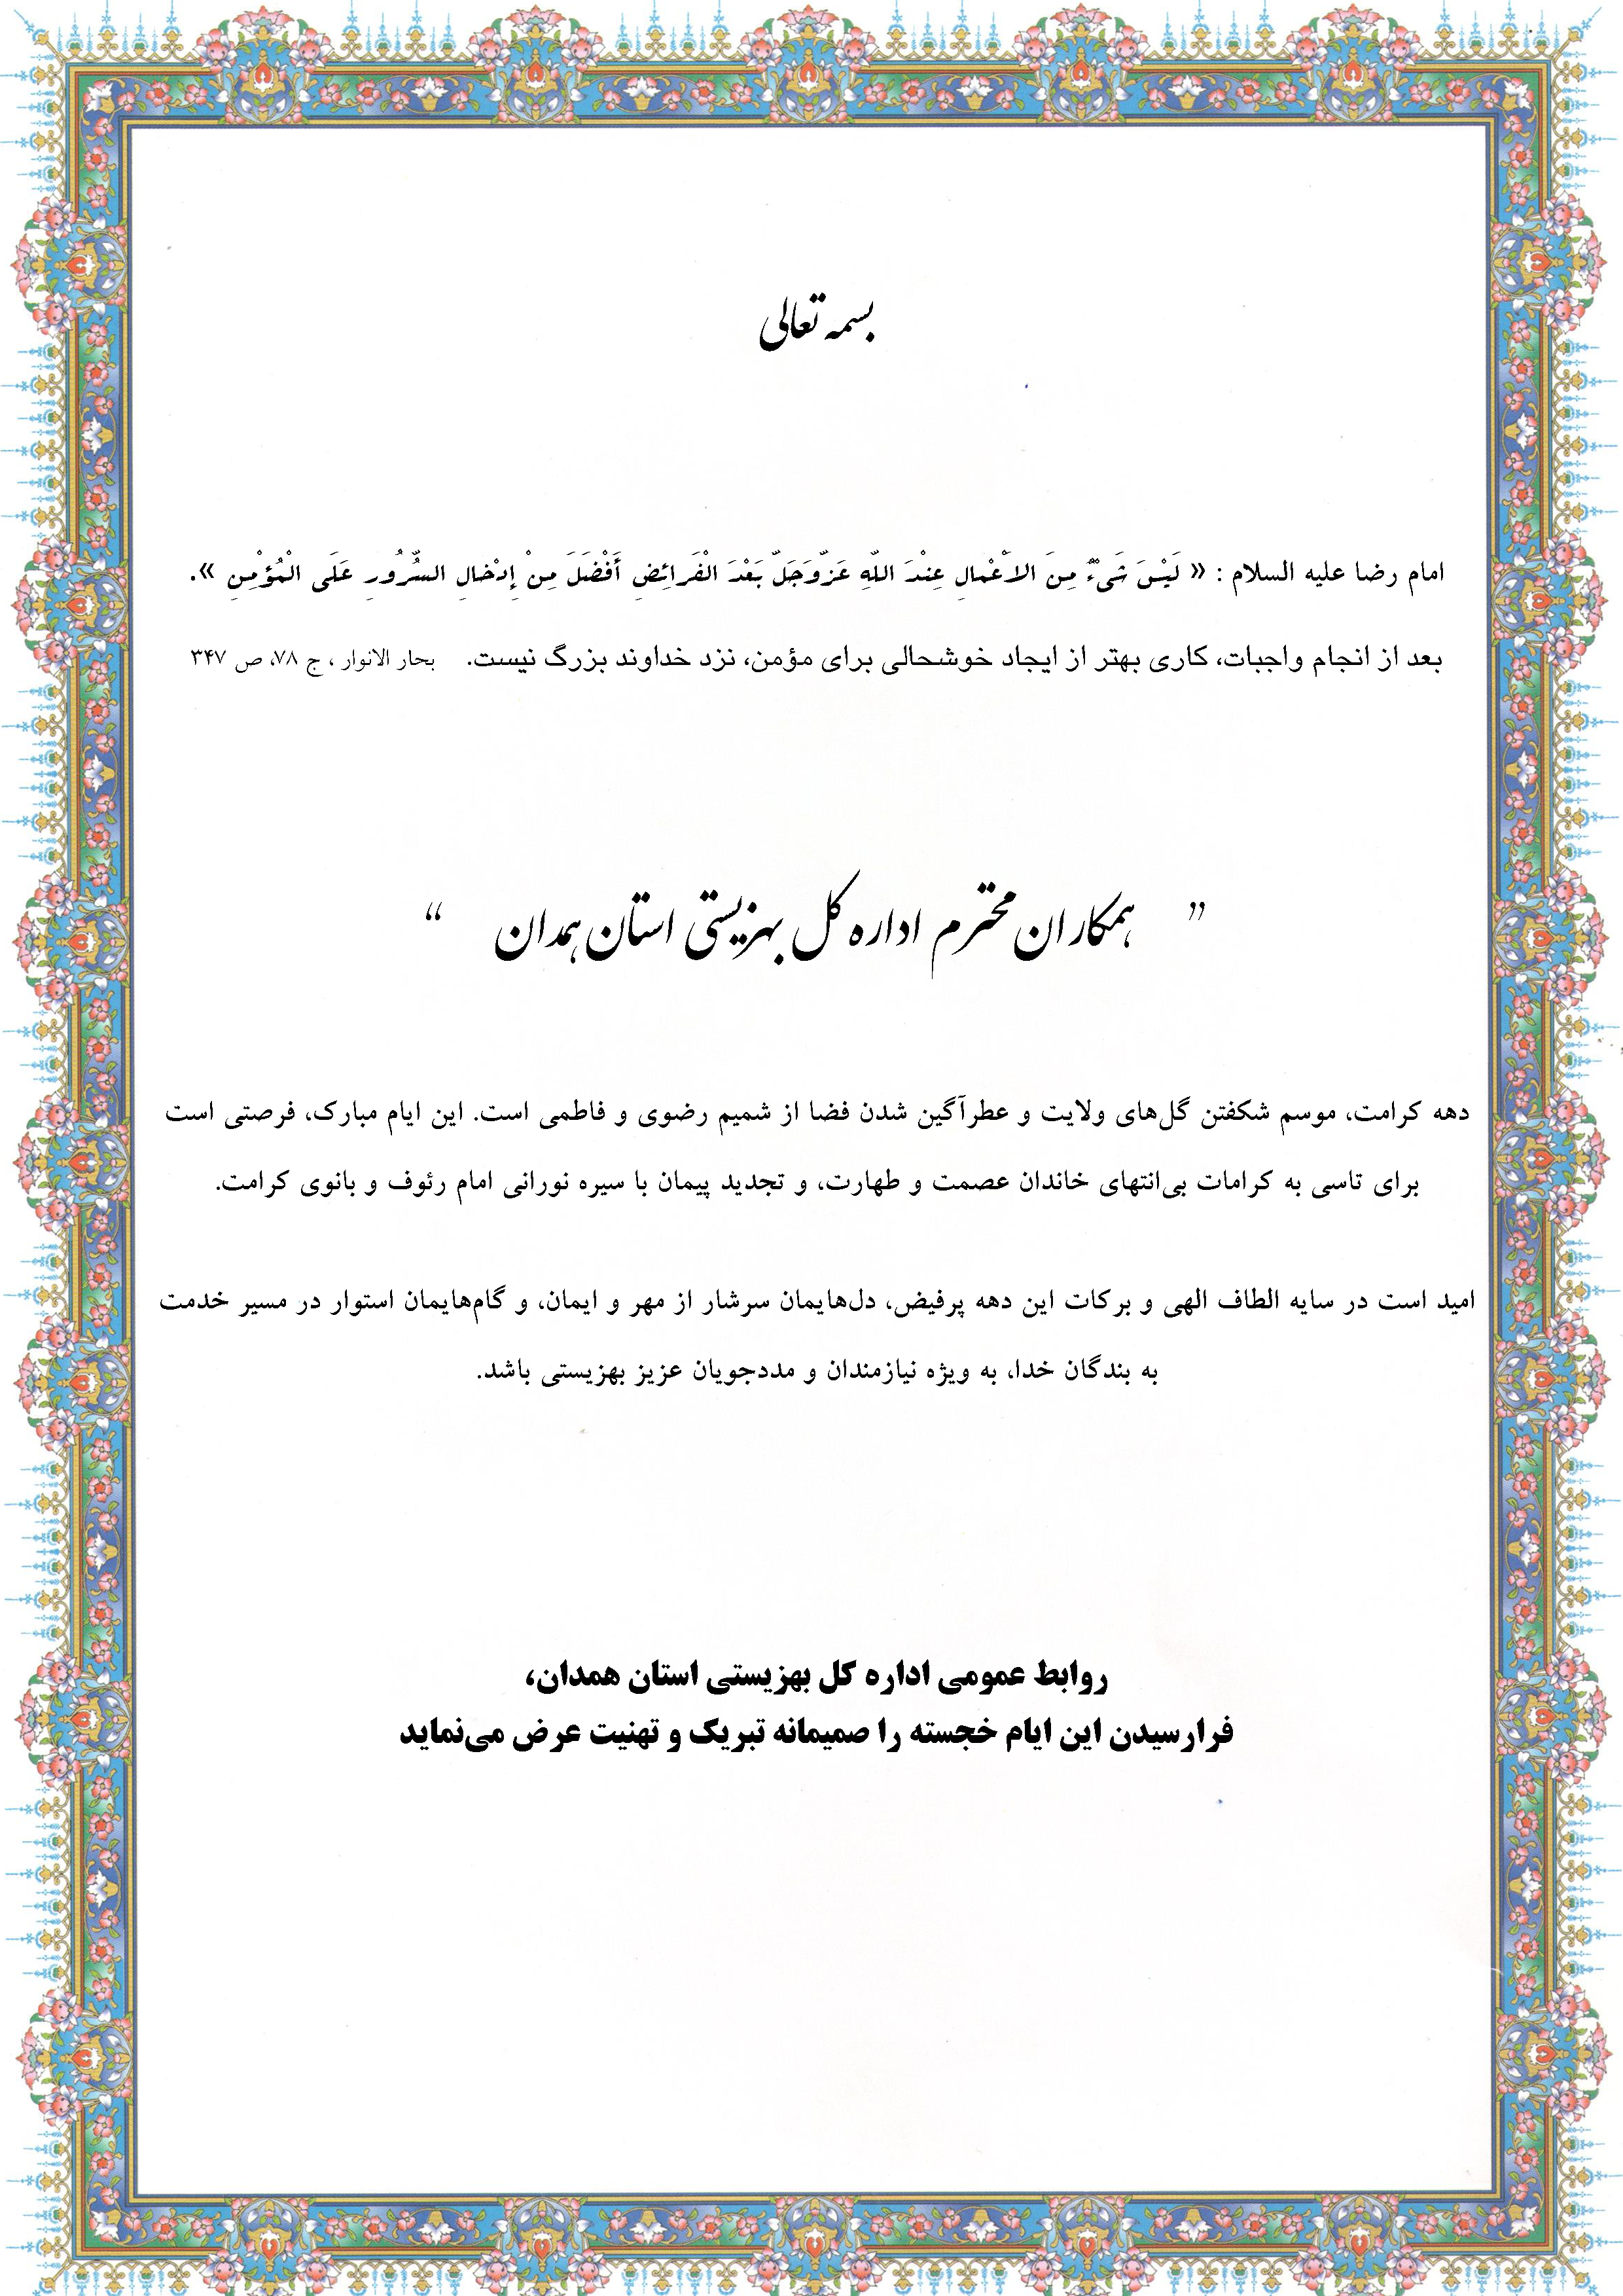 بسمه تعالی
امام رضا علیه السلام : « لَیْسَ شَیْءٌ مِنَ الاَعْمالِ عِنْدَ اللّهِ عَزَّوَجَلَّ بَعْدَ الْفَرائِضِ أَفْضَلَ مِنْ إِدْخالِ السُّرُورِ عَلَی الْمُؤْمِنِ ».
بعد از انجام واجبات، کاری بهتر از ایجاد خوشحالی برای مؤمن، نزد خداوند بزرگ نیست. بحار الانوار ، ج ۷۸، ص ۳۴۷
" همکاران محترم اداره کل بهزیستی استان همدان "
دهه کرامت، موسم شکفتن گل‌های ولایت و عطرآگین شدن فضا از شمیم رضوی و فاطمی است. این ایام مبارک، فرصتی است
برای تاسی به کرامات بی‌انتهای خاندان عصمت و طهارت، و تجدید پیمان با سیره نورانی امام رئوف و بانوی کرامت.
امید است در سایه الطاف الهی و برکات این دهه پرفیض، دل‌هایمان سرشار از مهر و ایمان، و گام‌هایمان استوار در مسیر خدمت
به بندگان خدا، به ویژه نیازمندان و مددجویان عزیز بهزیستی باشد.
روابط عمومی اداره کل بهزیستی استان همدان،
فرارسیدن این ایام خجسته را صمیمانه تبریک و تهنیت عرض می‌نماید